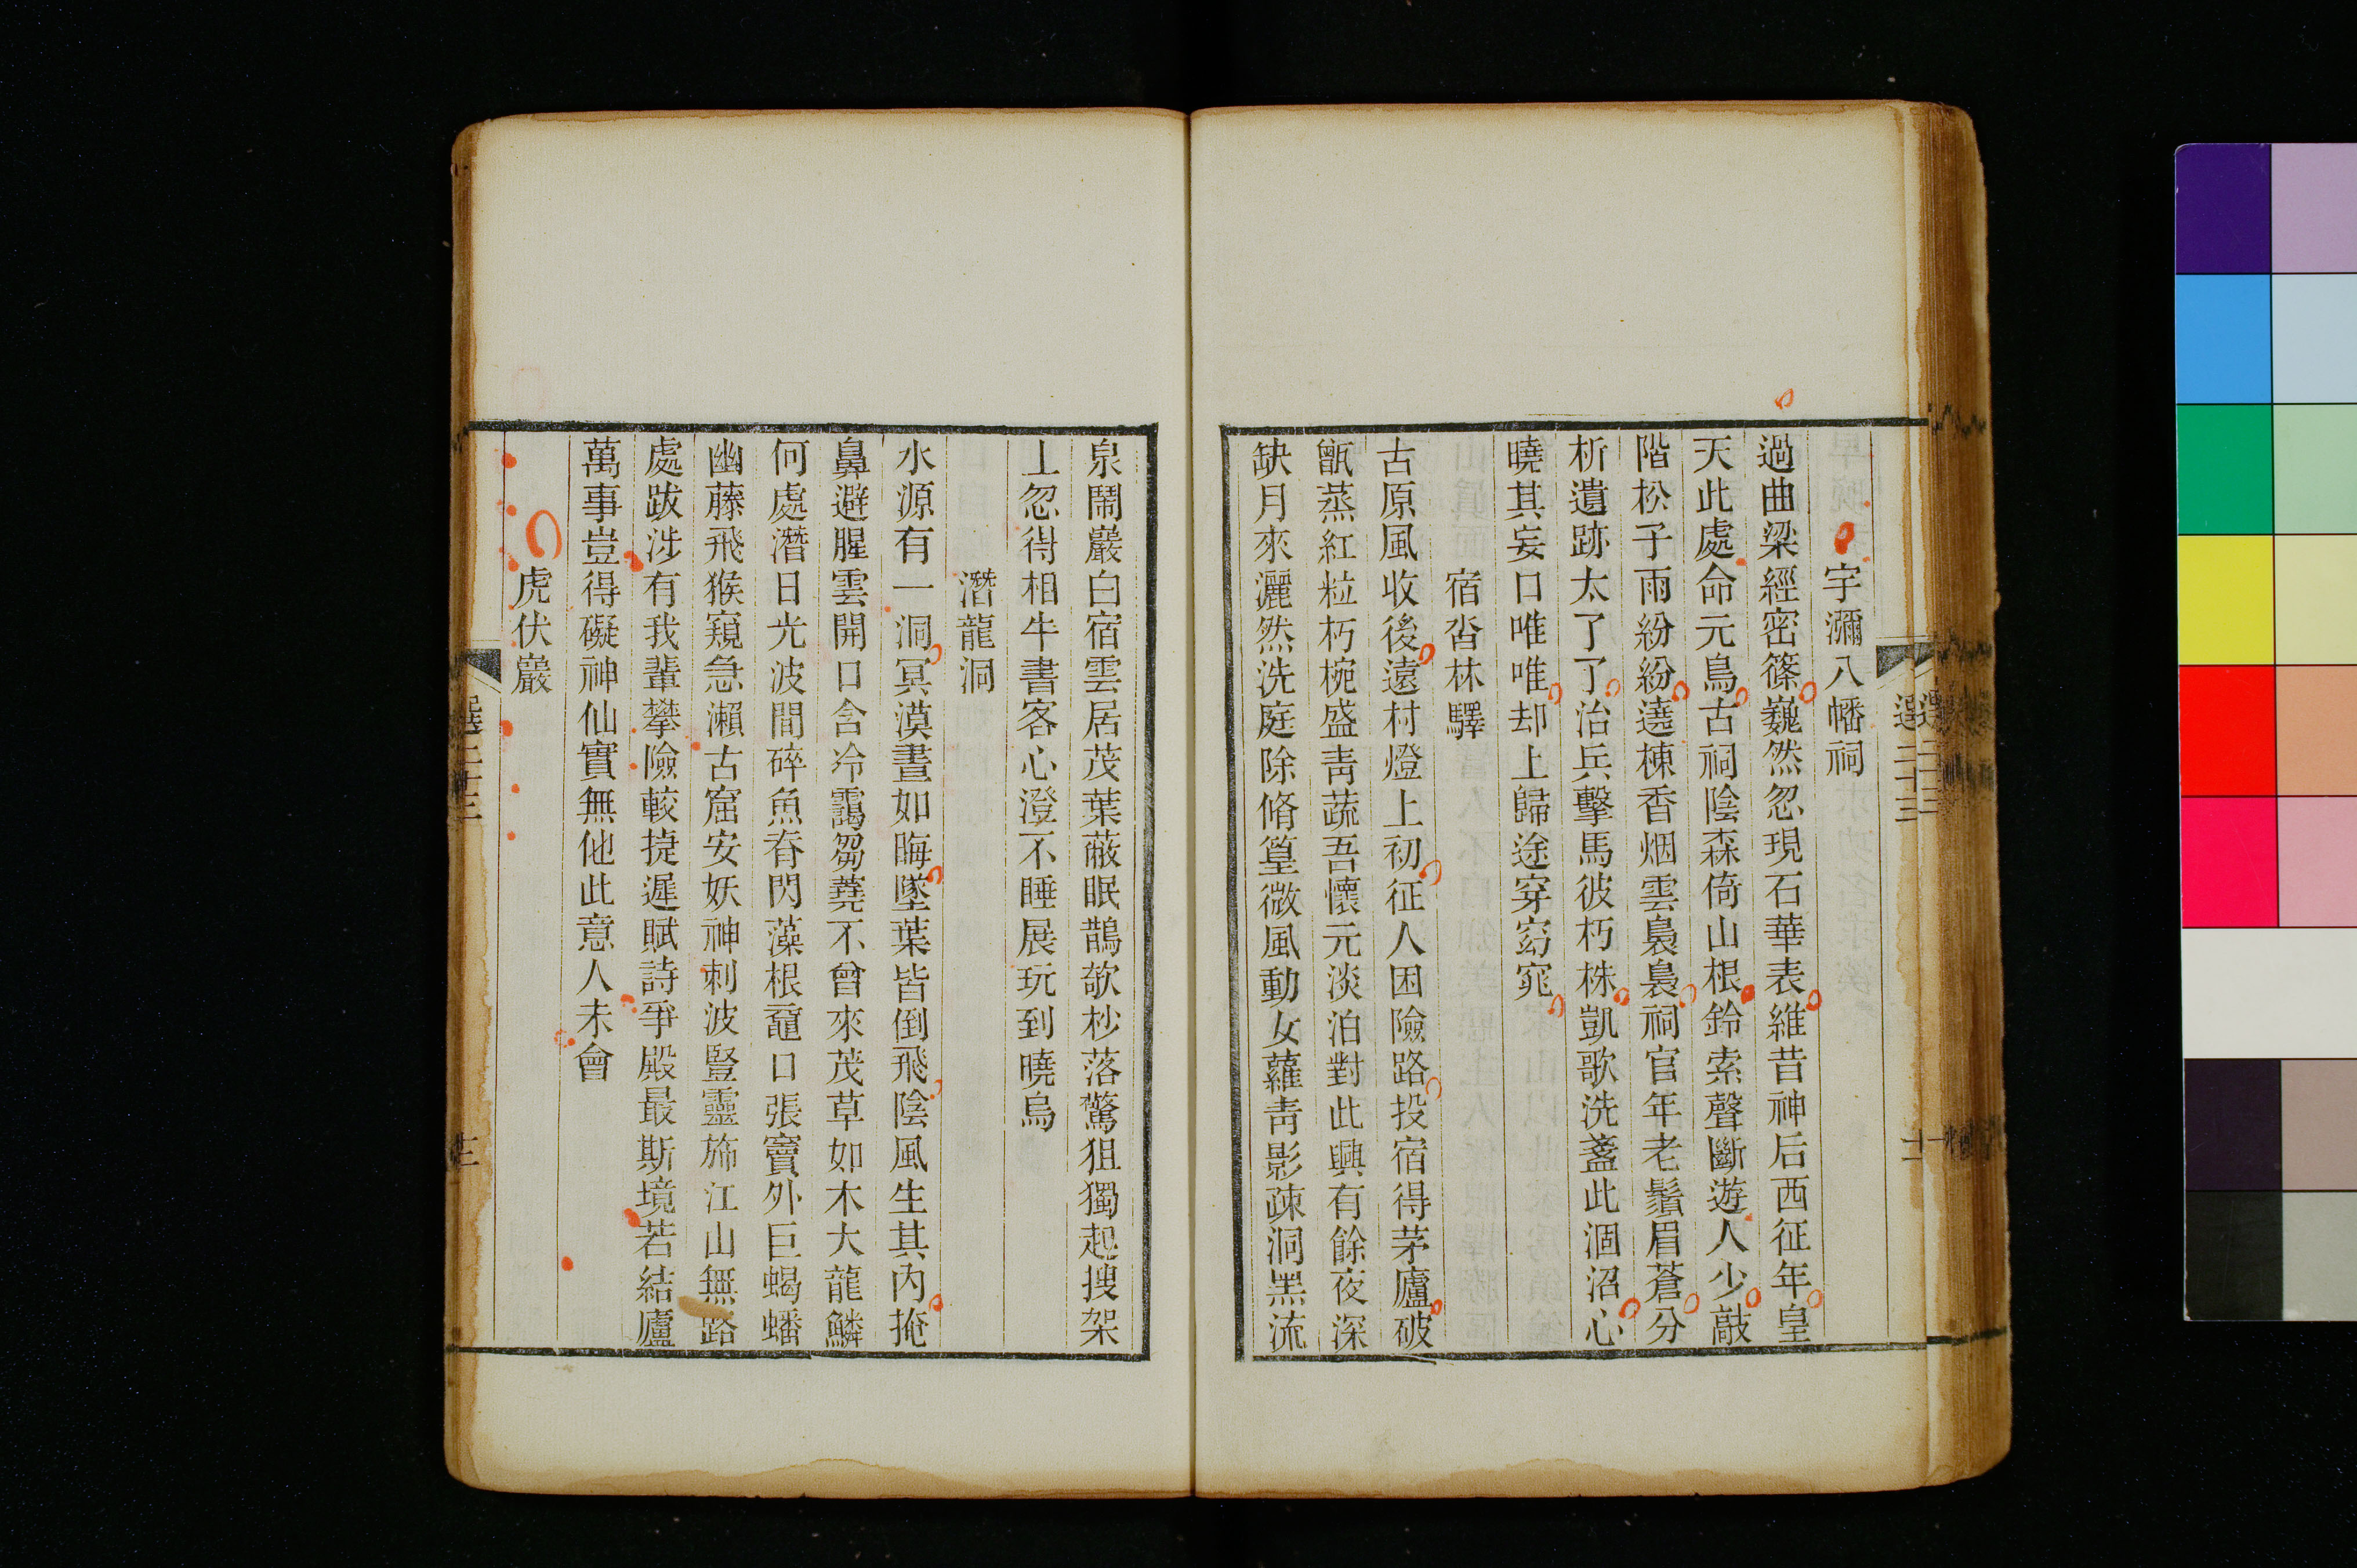 宇瀰八幡祠
過曲梁經密篠巍然忽現石華表維昔神后西征年皇
天此處命元鳥古祠陰森倚山根鈴索聲斷遊人少敲
階松子雨紛紛遶棟香烟雲裊裊祠官年老鬚眉蒼分
析遺跡太了了治兵擊馬彼朽株凱歌洗盞此涸沼心
曉其妄口唯唯却上歸途穿窈窕
宿沓林驛
古原風收後遠村燈上初征人困險路投宿得茅廬破
甑蒸紅粒朽椀盛靑蔬吾懷元淡泊對此興有餘夜深
缺月來灑然洗庭除脩篁微風動女蘿靑影疎洞黑流
泉鬧巖白宿雲居茂葉蔽眠鵲欹杪落驚狙獨起搜架
上忽得相牛書客心澄不睡展玩到曉烏
潛龍洞
水源有一洞冥漠晝如晦墜葉皆倒飛陰風生其內掩
鼻避腥雲開口含冷靄芻蕘不曾來茂草如木大龍鱗
何處潛日光波間碎魚脊閃藻根黿口張竇外巨蝎蟠
幽藤飛猴窺急瀨古窟安妖神刺波豎靈旆江山無路
處跋涉有我輩攀險較捷遲賦詩爭殿最斯境若結廬
萬事豈得礙神仙實無他此意人未會
虎伏巖
選二十三